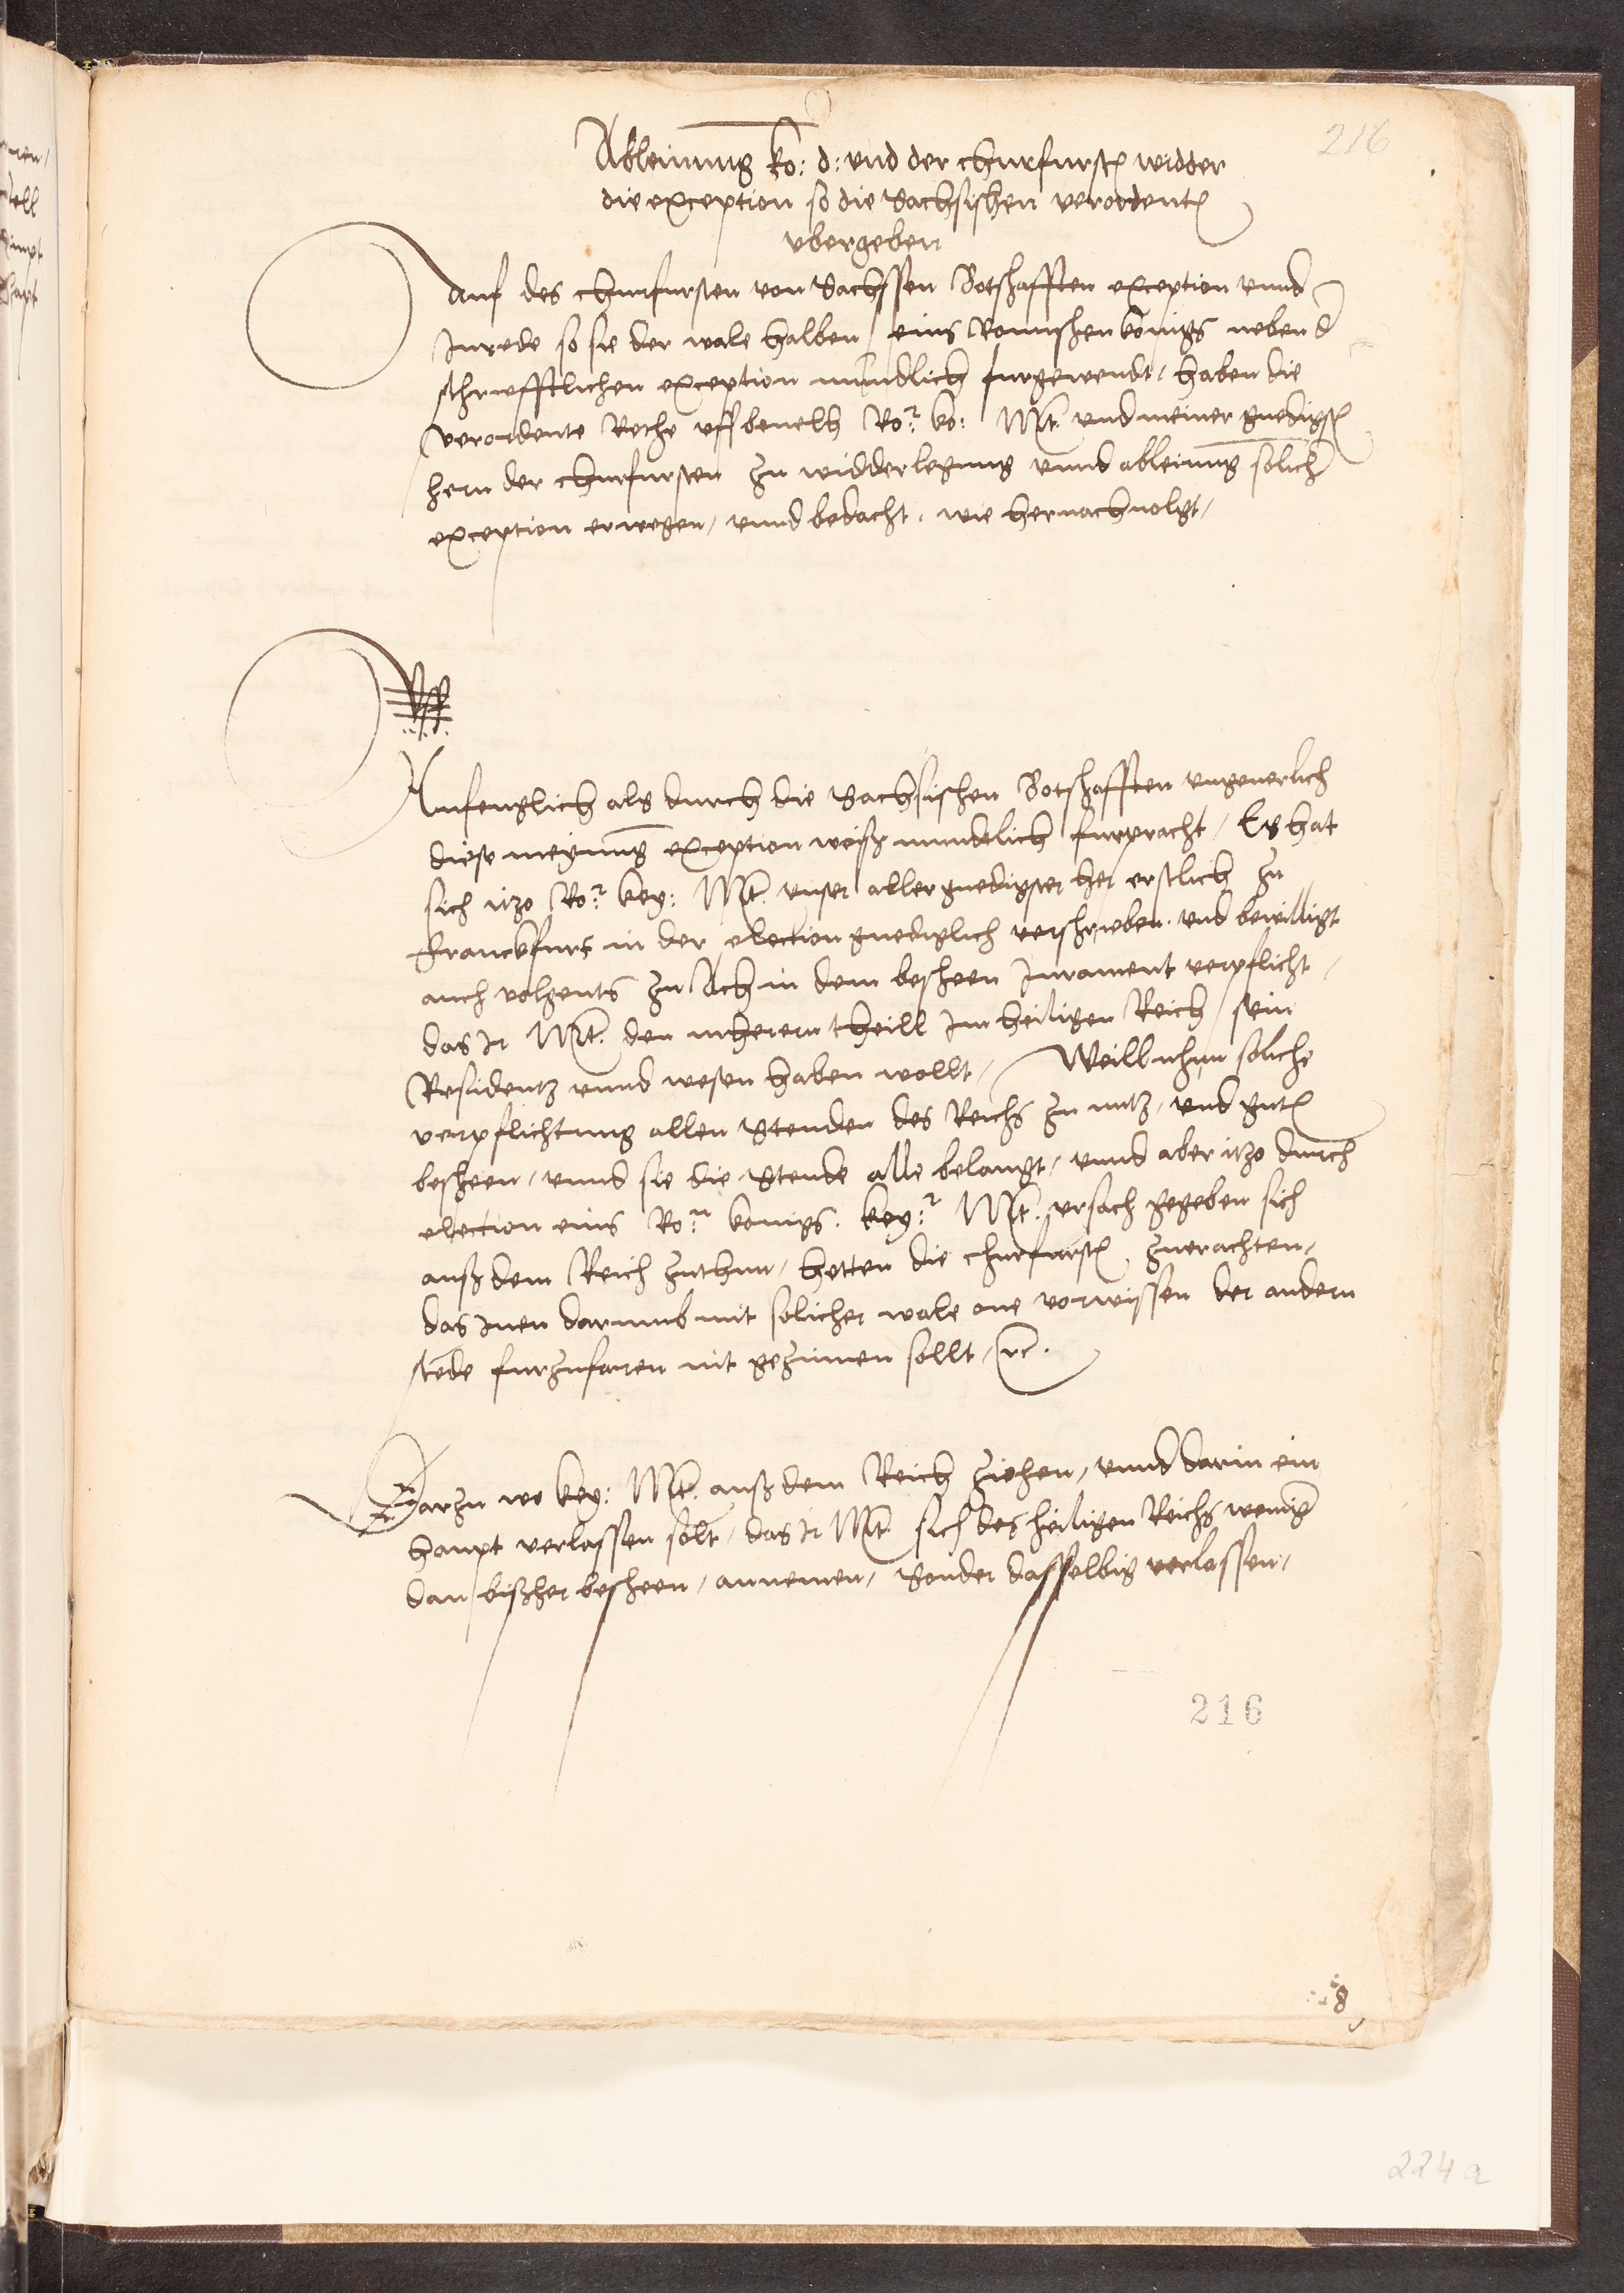 216
Ableinung ko: d: vnd der churfurstn̄ widder
die exception so die Sachsischen verordentn̄
vbergeben
Auf des churfursten von Sachssen Botshafften exception vnnd
Inrede so sie der wale halben / eins Romischen konigs neben d
schriefftlichen exception mundlich furgewendt, haben die
verordente Rethe vff beuelh Ro:r ko: Mt. vnd meiner gnedigstn̄
hern der churfursten zu widderlegung vnnd ableinung solich
exception erwegen, vnnd bedacht, wie hernachuolgt,
Vff
Anfenglich als durch die Sachsischen Botshafften vngeuerlich
diese meynung exception weiß mundtlich furpracht, Es hat
sich itzo Ro:r key: Mt. vnser allergnedigster her erstlich zu
franckfurt in der election gnediglich verschrieben vnd bewilligt
auch volgents zu Ach in dem besheen Jurament verpflicht,
das Ir Mt. den mherern theill Im heiligen Reich sein
Residentz vnnd wesen haben wollt, Weill nhun soliche
verpflichtung allen Stenden des Reichs zu nutz, vnd gutn̄
besheen, vnnd sie die Stende alle belangt, vnnd aber itzo durch
election eins Ro:n konigs. key:r Mt. vrsach gegeben sich
auß dem Reich zuthun, hetten die churfurstn̄ zuerachten,
das Inen darumb mit solicher wale one vorwissen der andern
stēde furzufaren nit gezimen sollt, rc.
Darzu wo key: Mt. auß dem Reich ziehen, vnnd darin ein
haupt verlassen solt, das Ir Mt. sich des heiligen Reichs wenig
dan bißher besheen, annemen, Sonder dasselbig verlassen,
216
224 a